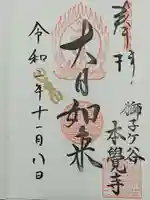 奉拝
大日如来
獅子ケ谷
本覺寺
令和三年十一月八日